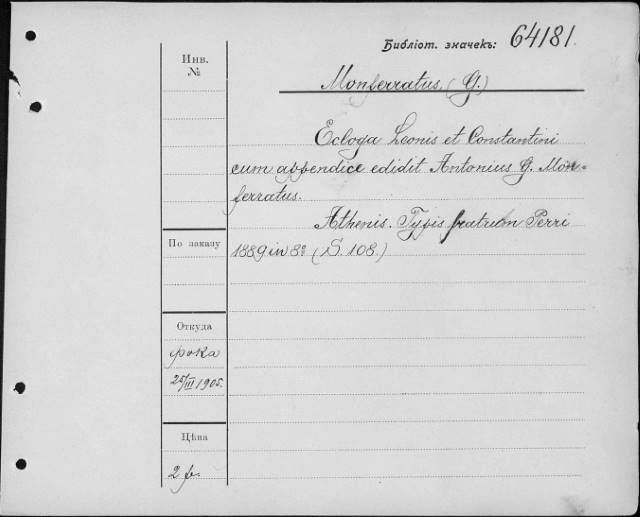 Библіот. значекъ: 64181.
Инв.
№
Monferratus. (G.)
Ecloga Leonis et Constantini
cum appendice edidit Antonius G. Mon-
ferratus.
Athenis. Typis fratrum Perri
1889 in 8º (S. 108.)
По заказу
Откуда
25/III 1905.
Цѣна
2 р.